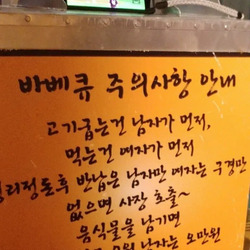 바베큐 주의사항 안내
고기굽는건 남자가 먼저,
먹는건 여자가 먼저
정리정돈후 반납은 남자만 여자는 구경만
없으면 사장 호출~
음식물을 남기면
남자는 오만원